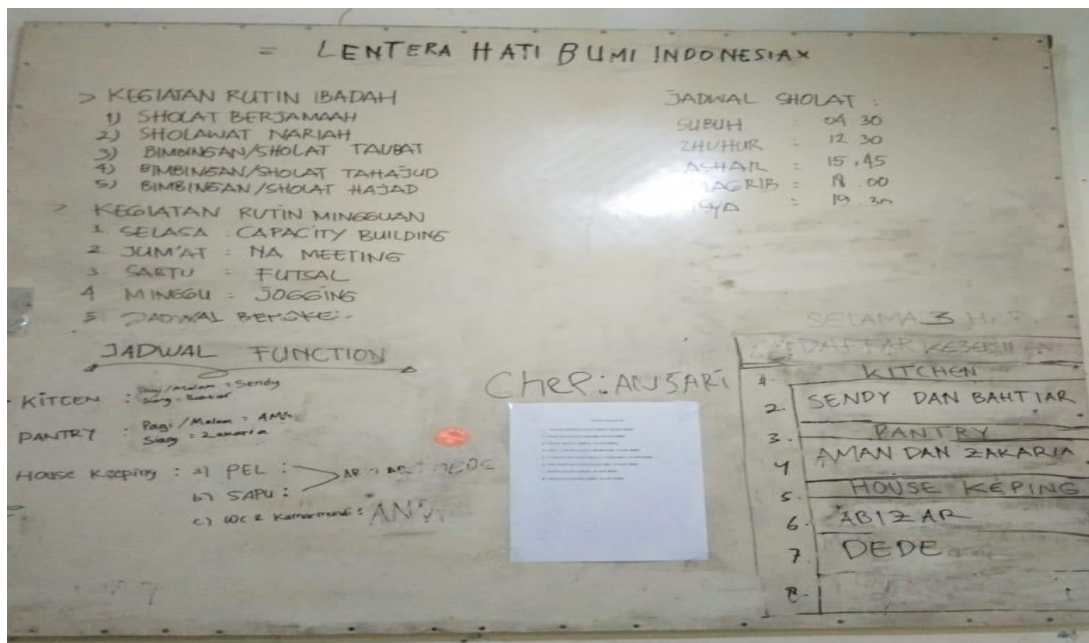 = LENTERA HATI BUMI INDONESIA
> KEGIATAN RUTIN IBADAH
1) SHOLAT BERJAMAAH
2) SHOLAWAT NARIAH
3) BIMBINGAN/SHOLAT TAUBAT
4) BIMBINGAN/SHOLAT TAHAJUD
5) BIMBINGAN/SHOLAT HAJAD
> KEGIATAN RUTIN MINGGUAN
1 SELASA : CAPACITY BUILDING
2 JUM'AT : NA MEETING
3 SABTU : FUTSAL
4 MINGGU : JOGGING
5 JADWAL
JADWAL SHOLAT :
SUBUH : 04 30
ZHUHUR : 12.30
ASHAR : 15.45
MAGRIB : 18.00
ISYA : 19 30
JADWAL FUNCTION
KITCEN : Pagi/Malam = Sendy
Siang =
PANTRY : Pagi/Malam =
Siang = Zakaria
House Keeping : a) PEL :
DEDE
b) SAPU :
c) WC & Kamarmandi :
Chep: ANSARI
SELAMA 3
DAFTAR
KITCHEN
2. SENDY DAN BAHTIAR
3. PANTRY
4 AMAN DAN ZAKARIA
5. HOUSE KEPING
6. ABIZAR
7. DEDE
8.